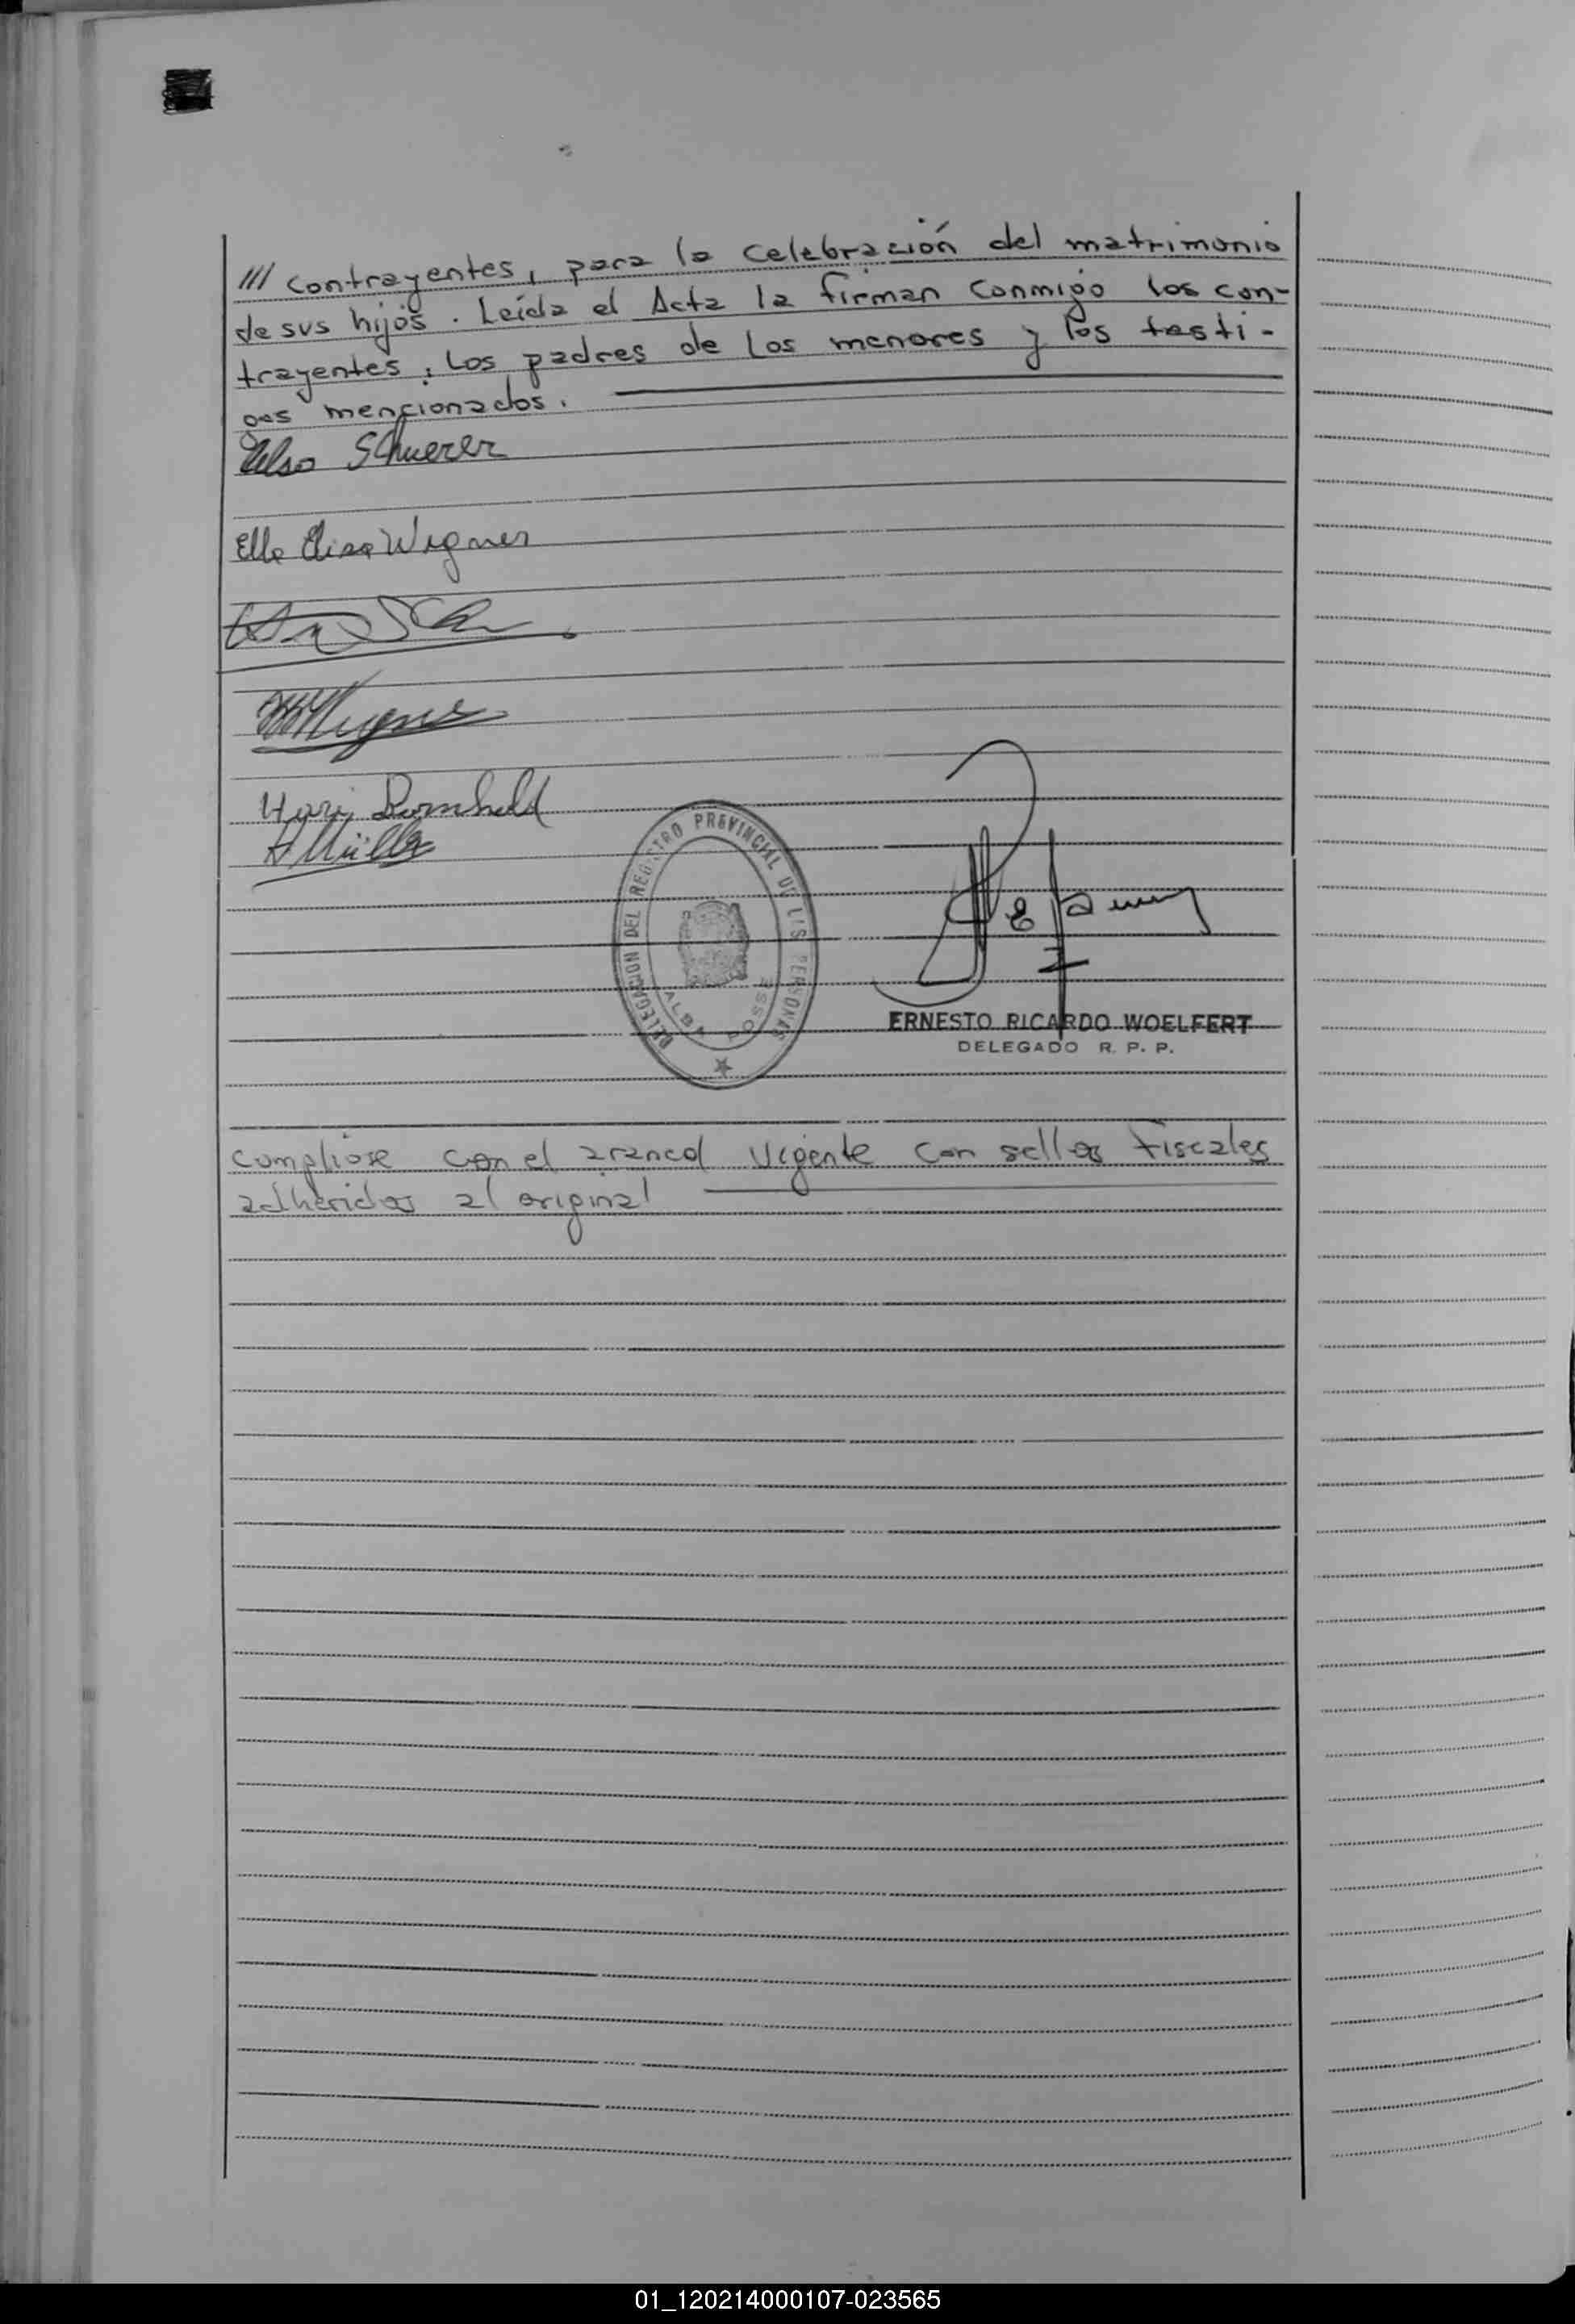 /// contrayentes, para la celebración del matrimonio
de sus hijos. Leída el Acta la firman conmigo los con-
trayentes, los padres de los menores y los testi-
gos mencionados.
Celso Schuerer
Ella Elisa Wegner
H. Müller
DELEGACION DEL REGISTRO PROVINCIAL DE LAS PERSONAS
ALBA POSSE
ERNESTO RICARDO WOELFERT
DELEGADO R. P. P.
Cumpliose con el arancel vigente con sellos fiscales
adheridos al original
01_120214000107-023565